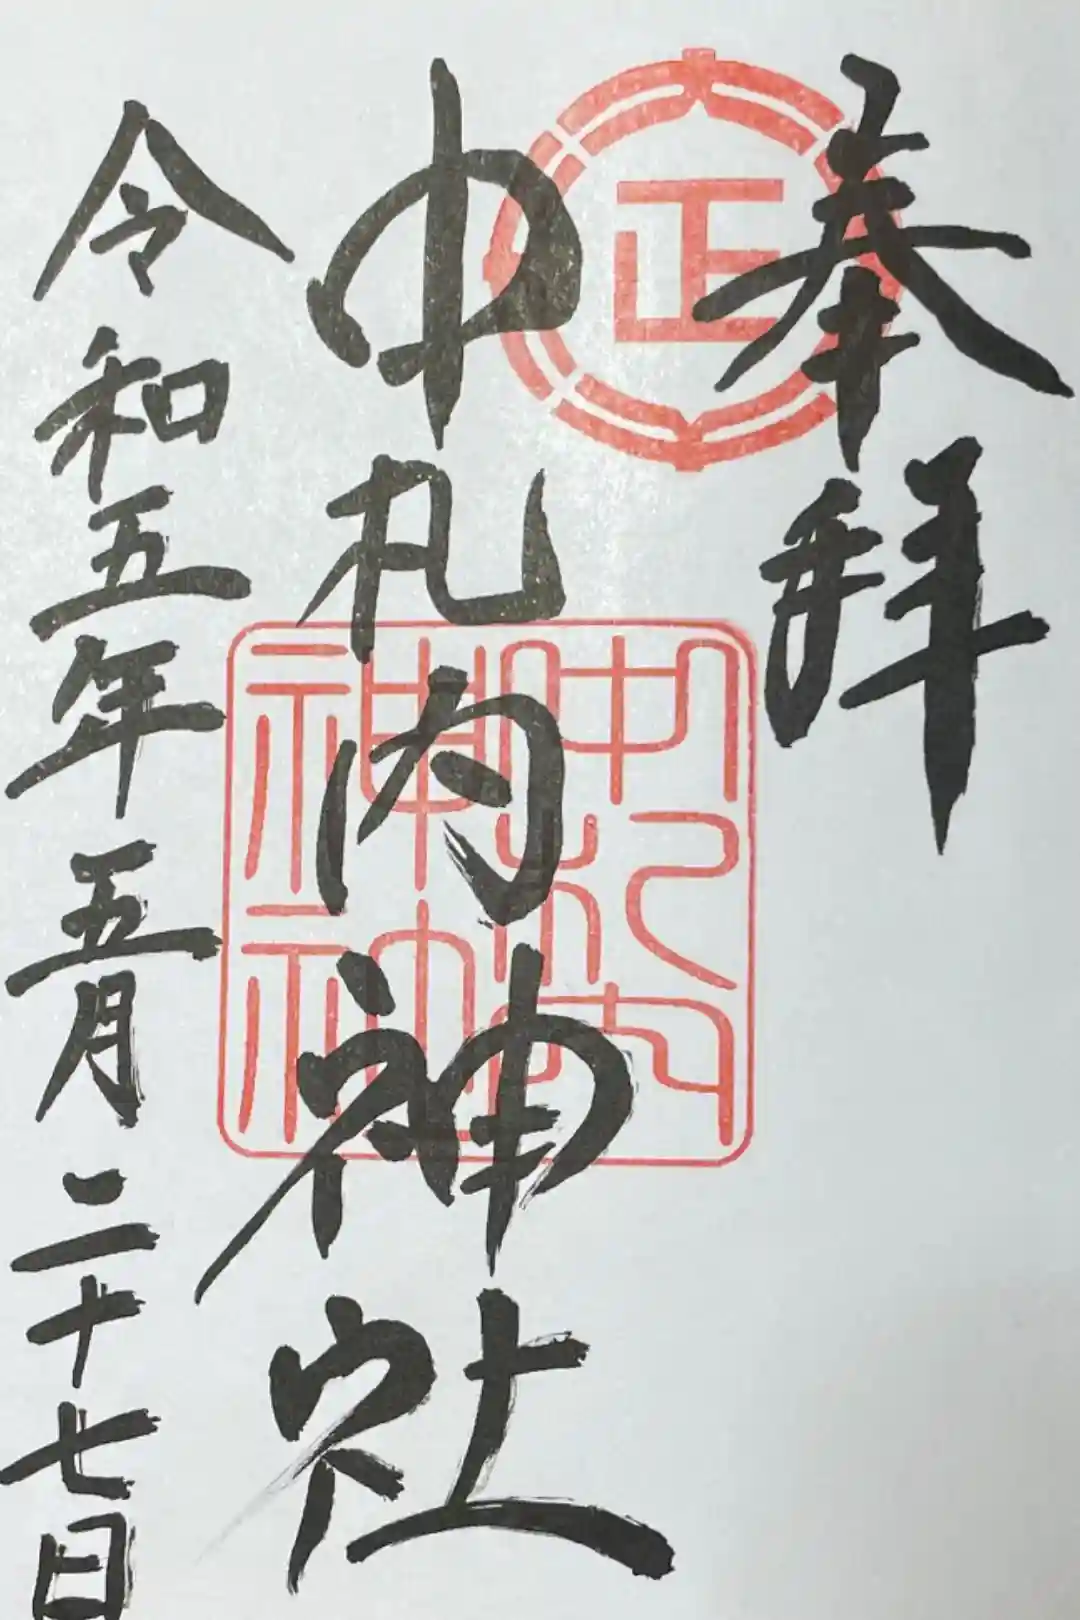 奉拝
正
中札内神社
中札内
神社
令和五年五月二十七日